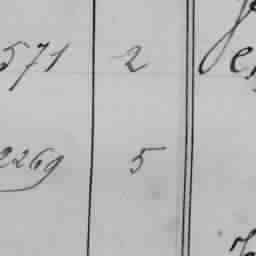 571 2
2269 5